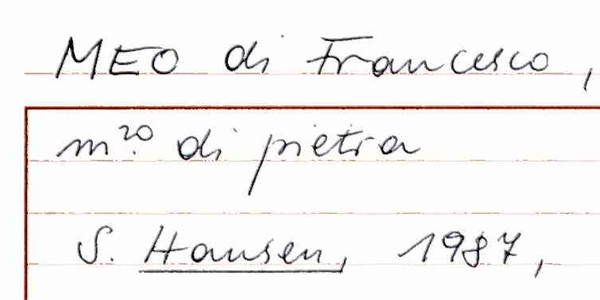 MEO di Francesco,
m.ro di pietra
S. Hansen, 1987,